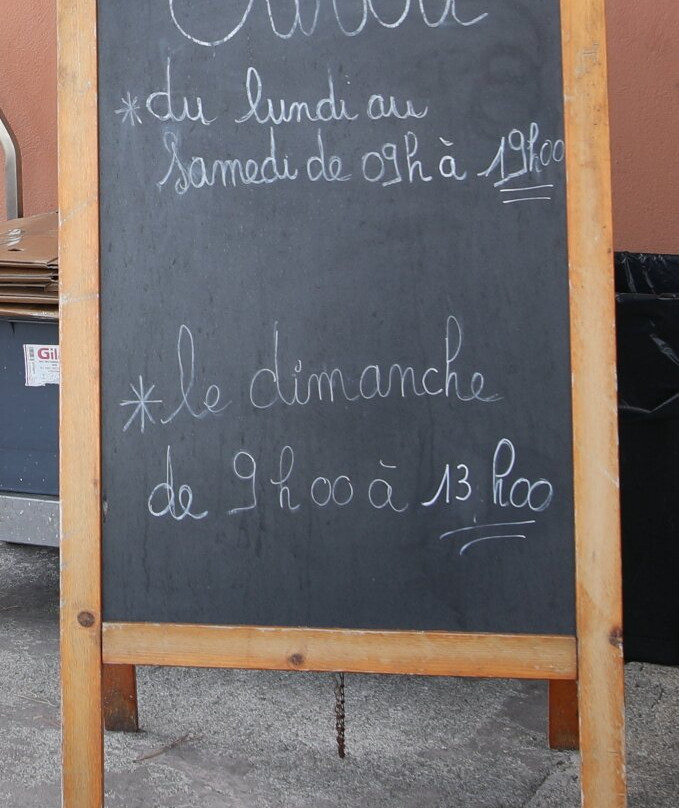 * du lundi au
samedi de 09h à 19h00
* le dimanche
de 9h00 à 13h00